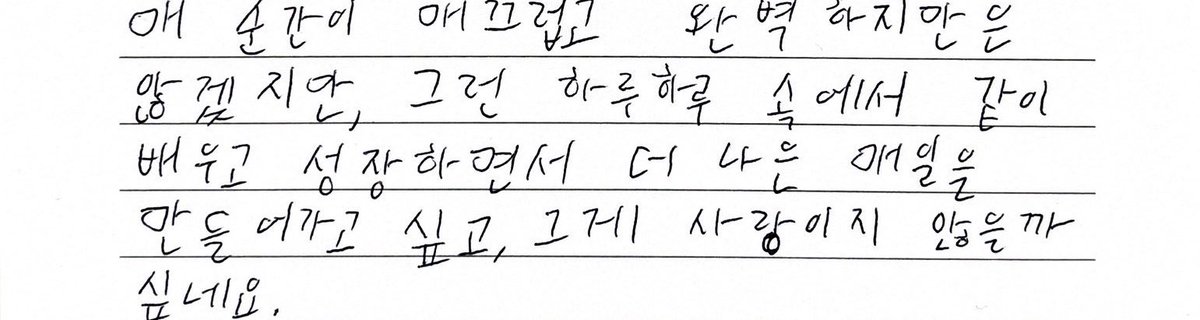 매 순간이 매끄럽고 완벽하지만은
않겠지만, 그런 하루하루 속에서 같이
배우고 성장하면서 더 나은 매일을
만들어가고 싶고, 그게 사랑이지 않을까
싶네요.